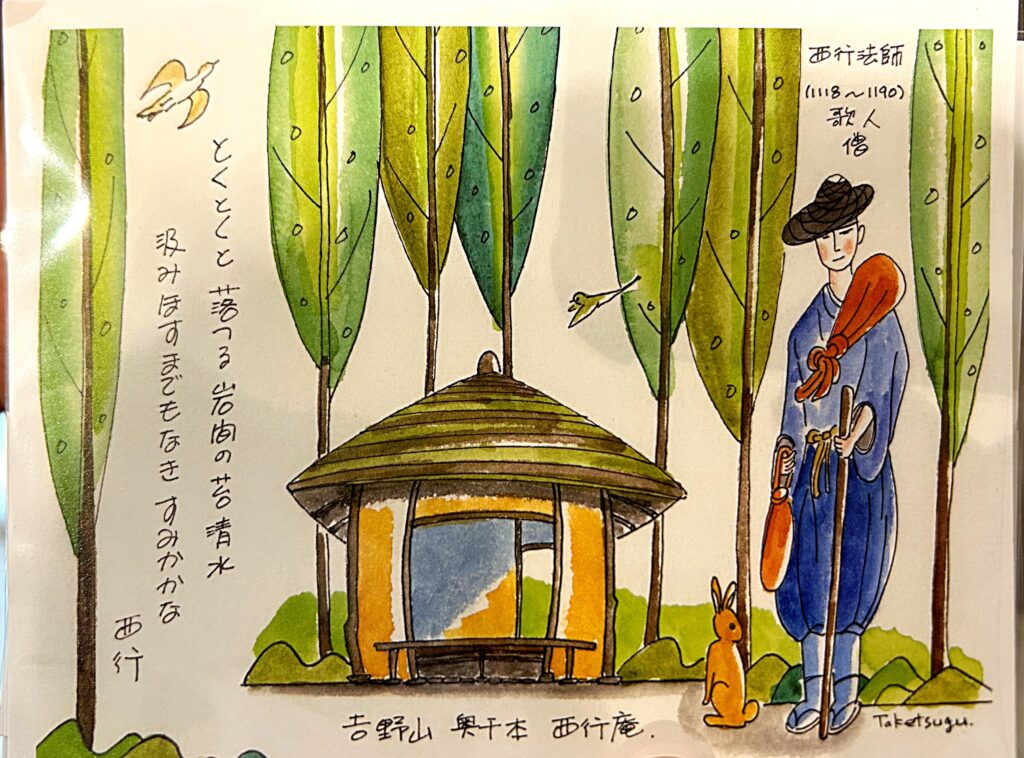 西行法師
(1118〜1190)
歌人
僧
とくとくと 落つる 岩間の 苔清水
汲みほすまでもなき すみかかな
西行
吉野山 奥千本 西行庵.
Taketsugu.